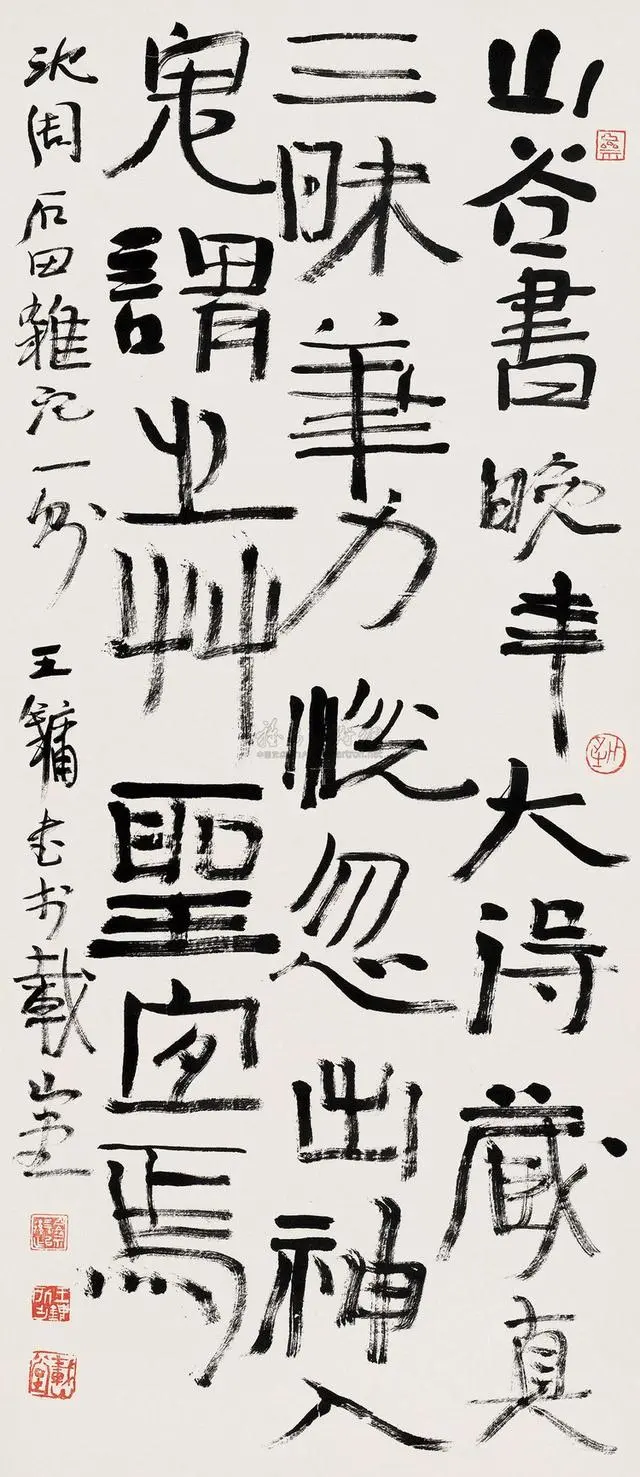 山谷書晚年大得藏真
三昧筆力恍忽出神入
鬼謂之艸聖宜焉
沈周石田雜記一則 王鏞書於載山堂